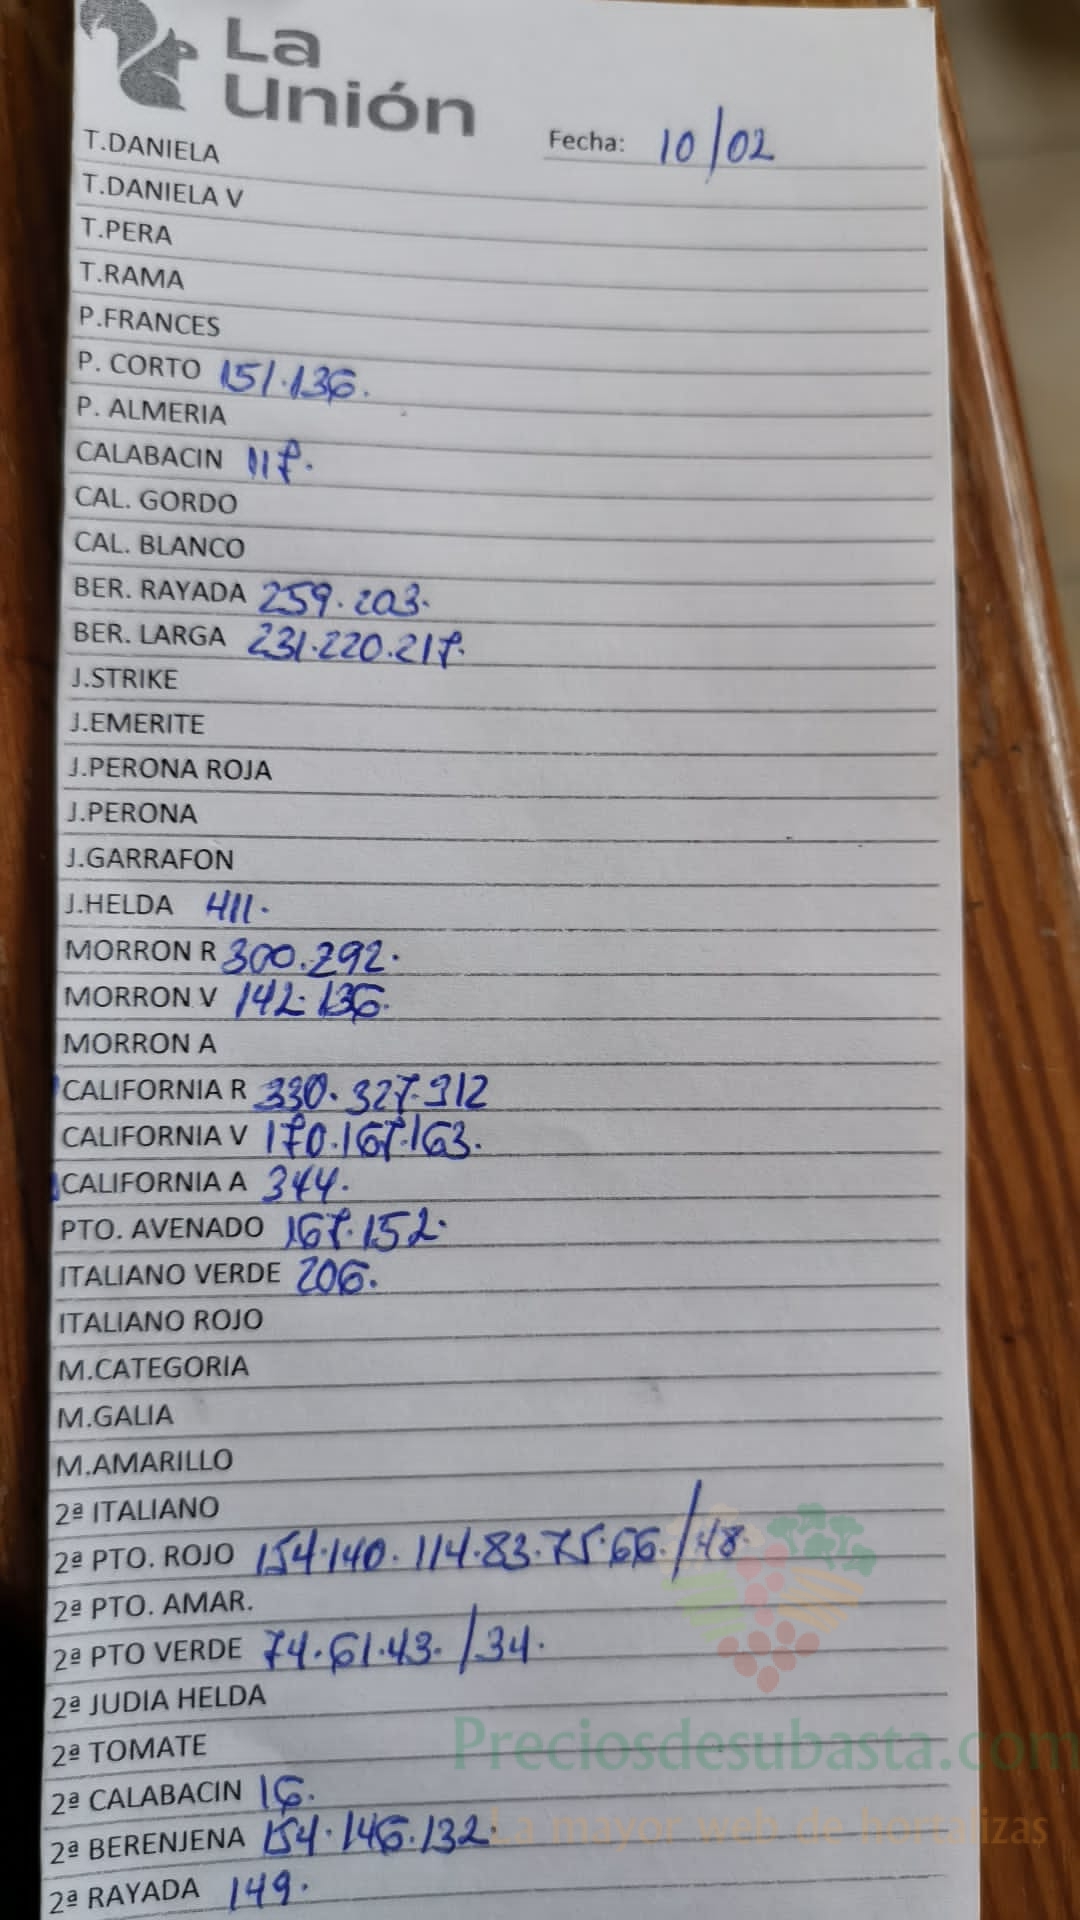 La
Unión
Fecha: 10/02
T.DANIELA
T.DANIELA V
T.PERA
T.RAMA
P.FRANCES
P. CORTO 151.136.
P. ALMERIA
CALABACIN 117.
CAL. GORDO
CAL. BLANCO
BER. RAYADA 259.203.
BER. LARGA 231.220.217.
J.STRIKE
J.EMERITE
J.PERONA ROJA
J.PERONA
J.GARRAFON
J.HELDA 411.
MORRON R 300.292.
MORRON V 142.136.
MORRON A
CALIFORNIA R 330.327.312
CALIFORNIA V 170.167.163.
CALIFORNIA A 344.
PTO. AVENADO 167.152.
ITALIANO VERDE 206.
ITALIANO ROJO
M.CATEGORIA
M.GALIA
M.AMARILLO
2ª ITALIANO
2ª PTO. ROJO 154.140.114.83.75.66./48.
2ª PTO. AMAR.
2ª PTO VERDE 74.61.43./34.
2ª JUDIA HELDA
2ª TOMATE
2ª CALABACIN 16.
2ª BERENJENA 154.146.132.
2ª RAYADA 149.
Preciosdesubasta.com
La mayor web de hortalizas